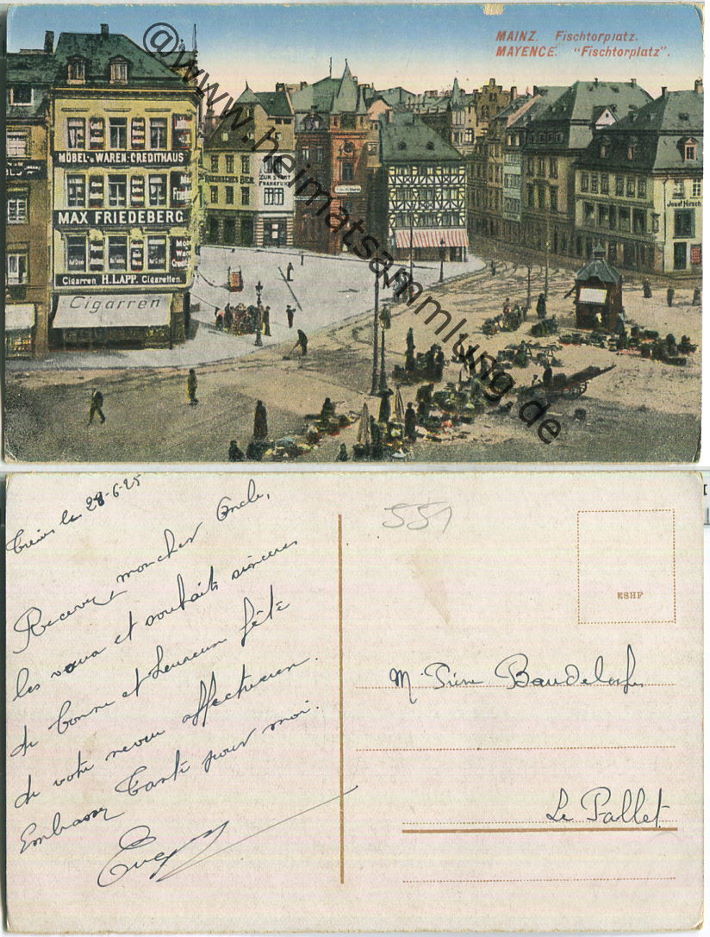 MAINZ. Fischtorplatz.
MAYENCE. "Fischtorplatz".
@www.heimatsammlung.de
MÖBEL- u. WAREN-CREDITHAUS
MAX FRIEDEBERG
Cigarren H. LAPP. Cigaretten.
Cigarren
FRANKFURT
Josef Hirsch
le 28-6-25
Recevez mon cher Oncle,
les vœux et souhaits sincères
de bonne et heureuse fête
de votre neveu affectueux.
Embrassez Tante pour moi.
551
ESHF
M. Baudeloche
Le Pallet